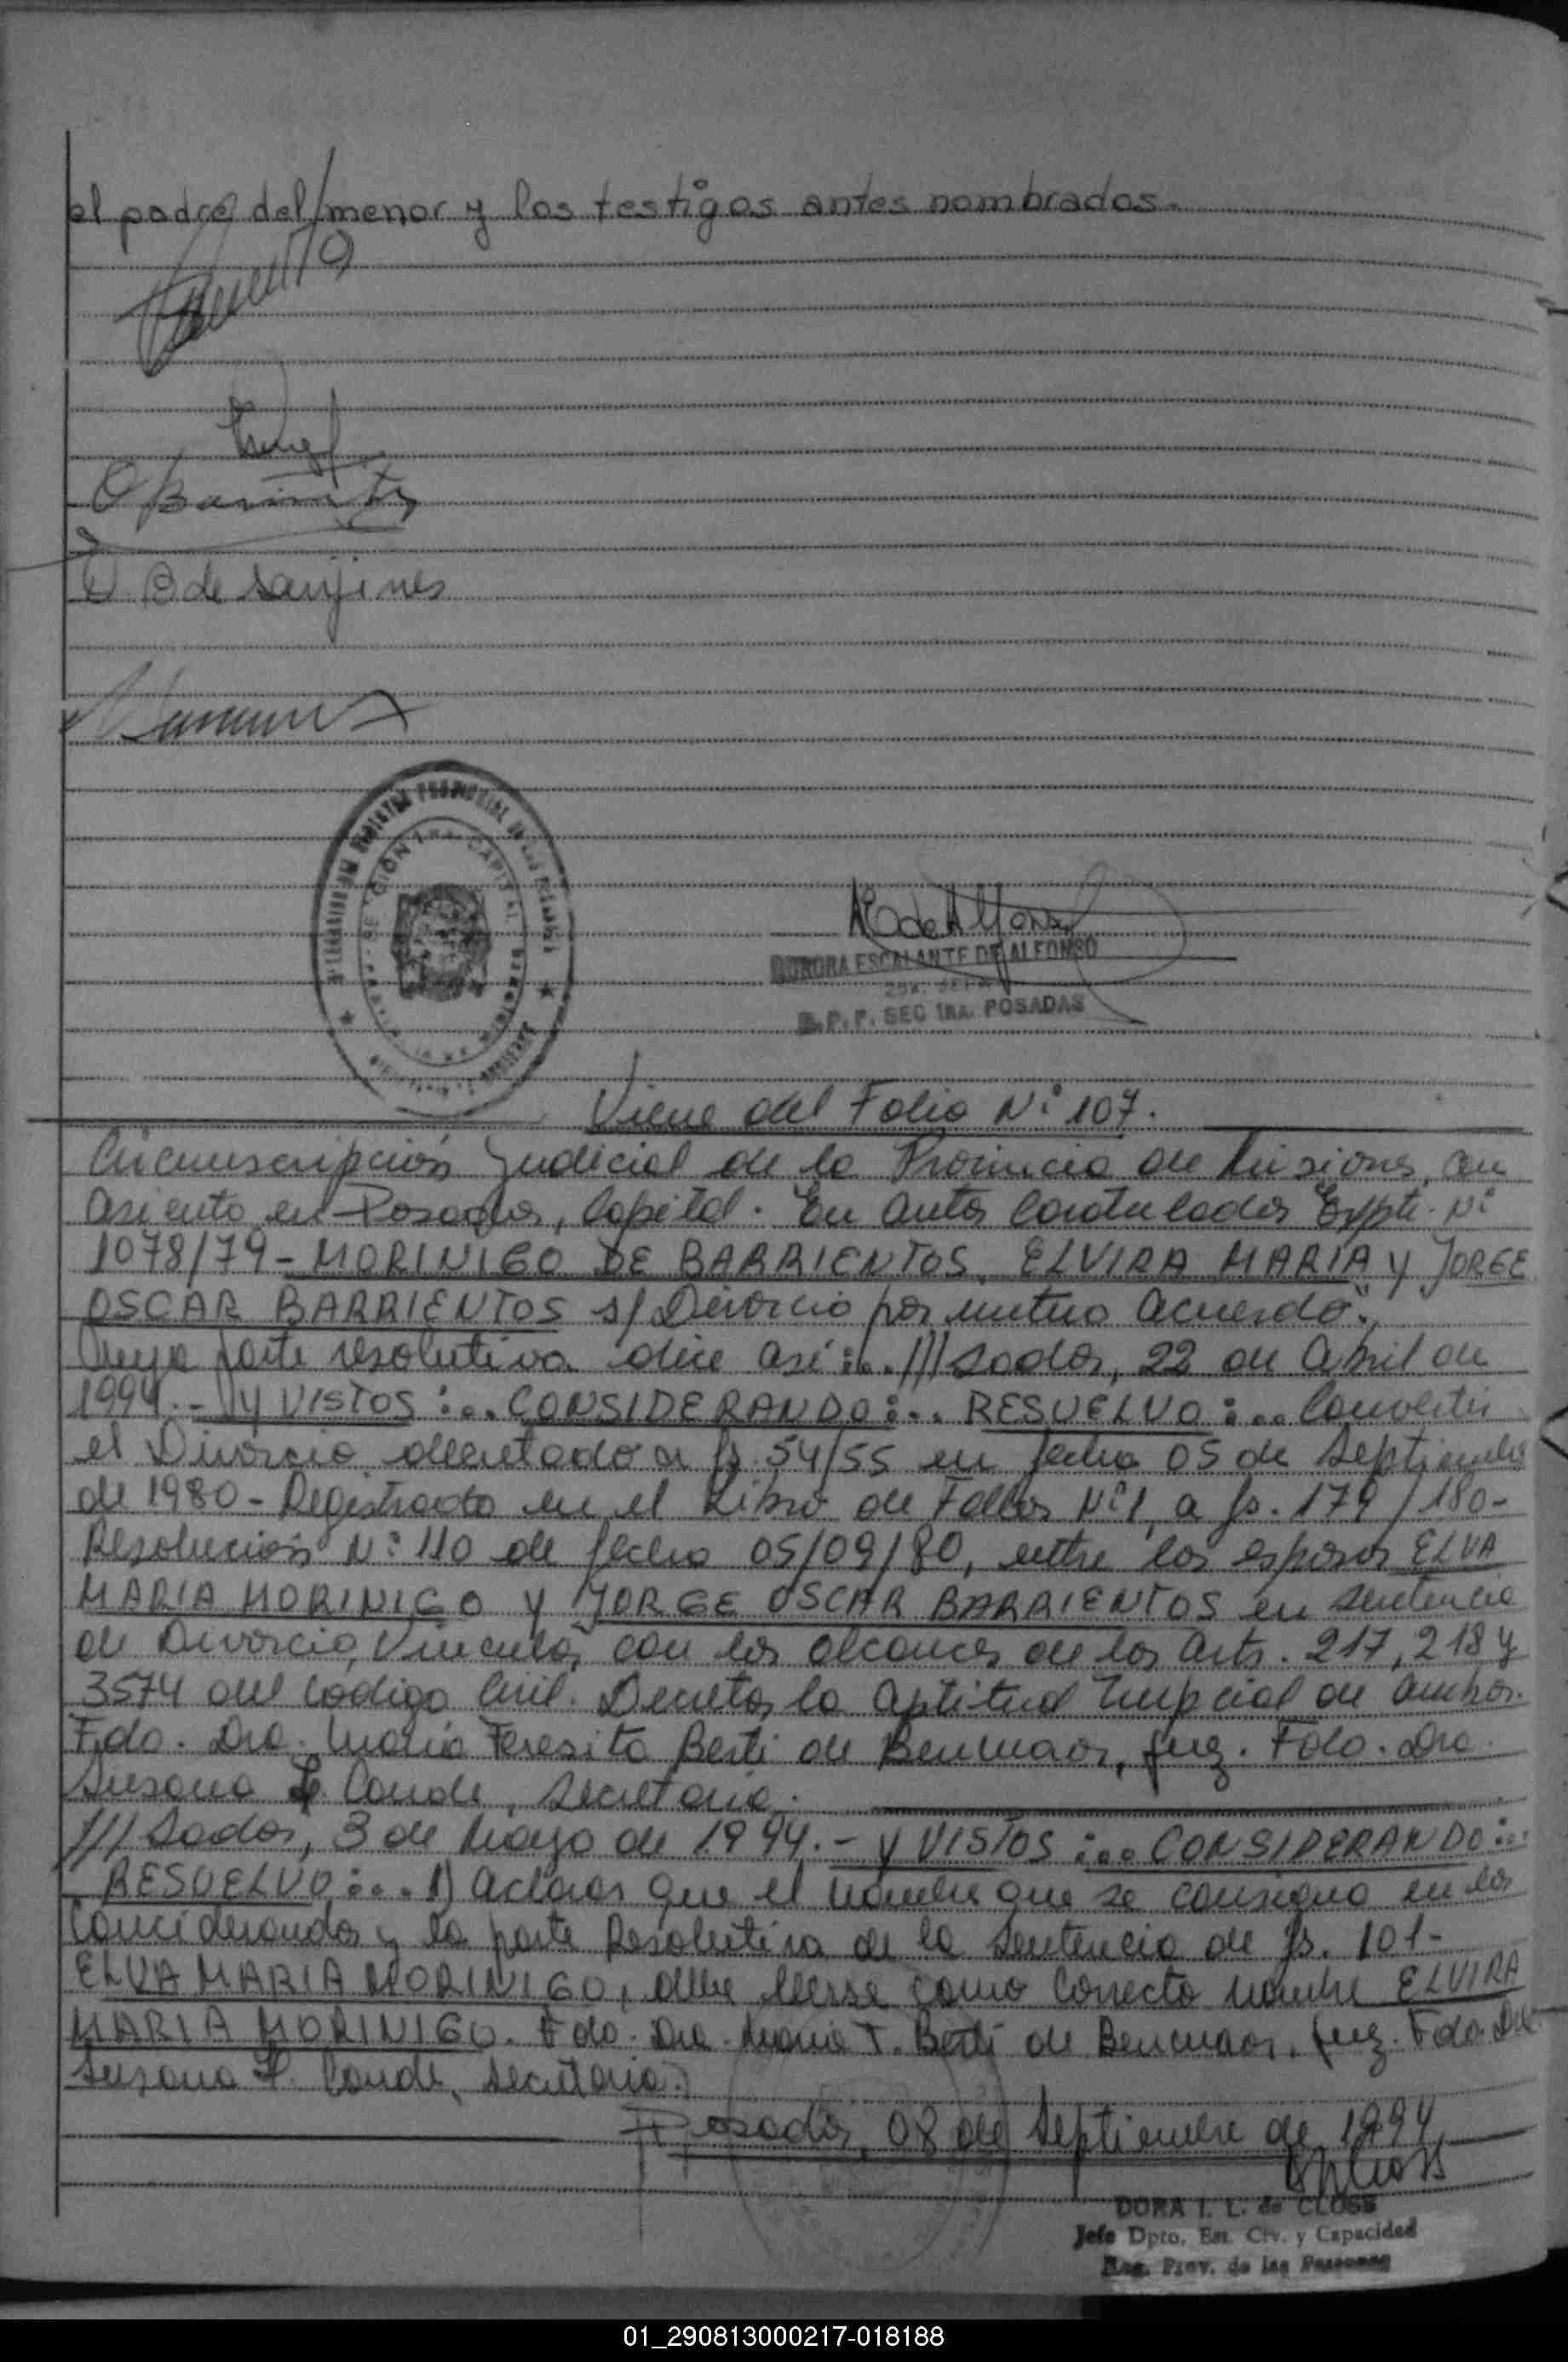 el padre del menor y los testigos antes nombrados.-
O Barrientos
O. B de Sanjines
AEe de Alfonso
AURORA ESCALANTE DE ALFONSO
R.P.P. SEC 1RA. POSADAS
Viene del Folio Nº 107.
Circunscripción Judicial de la Provincia de Misiones, con
asiento en Posadas, Capital. En autos Caratulados Expte. Nº
1078/79 - MORINIGO DE BARRIENTOS, ELVIRA MARIA y JORGE
OSCAR BARRIENTOS s/ Divorcio por mutuo acuerdo".
Cuya parte resolutiva dice así:... ///sadas, 22 de Abril de
1994.- Y VISTOS:... CONSIDERANDO:... RESUELVO:... Convertir
el Divorcio decretado a fs. 54/55 en fecha 05 de Septiembre
de 1980 - Registrado en el Libro de Fallos Nº 1, a fs. 179/180-
Resolución Nº 110 de fecha 05/09/80, entre los esposos ELVA
MARIA MORINIGO y JORGE OSCAR BARRIENTOS en sentencia
de Divorcio Vincular, con los alcances de los arts. 217, 218 y
3574 del Codigo Civil. Decretar la aptitud Nupcial de ambos.
Fdo. Dra. María Teresita Berti de Benmaor, Juez. Fdo. Dra.
Susana Conde, Secretaria.
///sadas, 3 de Mayo de 1994.- Y VISTOS:... CONSIDERANDO:..
RESUELVO:... 1) Aclarar que el nombre que se consigna en los
Conciderandos y la parte Resolutiva de la Sentencia de fs. 101-
ELVA MARIA MORINIGO, debe leerse como Correcto nombre ELVIRA
MARIA MORINIGO. Fdo. Dra. Maria T. Berti de Benmaor, Juez. Fdo. Dra.
Susana Conde, Secretaria.
Posadas, 08 de Septiembre de 1994.
DORA I. L. de CLOSS
Jefe Dpto. Est. Civ. y Capacidad
Reg. Prov. de las Personas
01_290813000217-018188